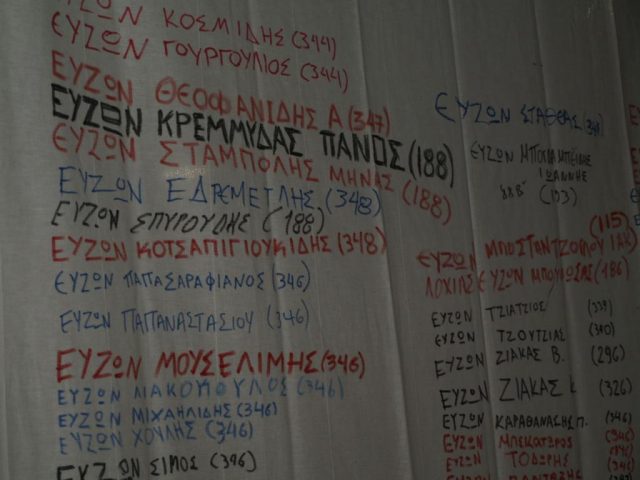 ΕΥΖΩΝ ΚΟΣΜΙΔΗΣ (344)
ΕΥΖΩΝ ΓΟΥΡΓΟΥΛΙΟΣ (344)
ΕΥΖΩΝ ΘΕΟΦΑΝΙΔΗΣ Α (347)
ΕΥΖΩΝ ΚΡΕΜΜΥΔΑΣ ΠΑΝΟΣ (188)
ΕΥΖΩΝ ΣΤΑΜΠΟΛΗΣ ΜΗΝΑΣ (188)
ΕΥΖΩΝ ΕΔΡΕΜΕΤΛΗΣ (348)
ΕΥΖΩΝ ΣΠΥΡΟΥΔΗΣ (188)
ΕΥΖΩΝ ΚΟΤΣΑΠΙΓΙΟΥΚΙΔΗΣ (348)
ΕΥΖΩΝ ΠΑΠΑΣΑΡΑΦΙΑΝΟΣ (346)
ΕΥΖΩΝ ΠΑΠΑΝΑΣΤΑΣΙΟΥ (346)
ΕΥΖΩΝ ΜΟΥΣΕΛΙΜΗΣ (346)
ΕΥΖΩΝ ΛΙΑΚΟΠΟΥΛΟΣ (346)
ΕΥΖΩΝ ΜΙΧΑΗΛΙΔΗΣ (346)
ΕΥΖΩΝ ΧΟΥΛΗΣ (346)
ΕΥΖΩΝ ΣΙΜΟΣ (346)
ΕΥΖΩΝ ΣΤΑΘΕΑΣ
ΕΥΖΩΝ
ΙΩΑΝΝΗΣ
(153)
(115)
ΕΥΖΩΝ
ΛΟΧΙΑΣ ΕΥΖΩΝ (186)
ΕΥΖΩΝ ΤΖΙΑΤΖΙΟΣ (339)
ΕΥΖΩΝ ΤΖΟΥΤΖΙΑΣ (340)
ΕΥΖΩΝ ΖΙΑΚΑΣ Β. (296)
ΕΥΖΩΝ ΖΙΑΚΑΣ (326)
ΕΥΖΩΝ ΚΑΡΑΘΑΝΑΣΗΣ Π. (346)
ΕΥΖΩΝ ΜΠΕΚΑΤΩΡΟΣ (346)
ΕΥΖΩΝ ΤΟΔΩΡΗΣ (346)
ΕΥΖΩΝ ΠΑΝΤΑΖΗΣ